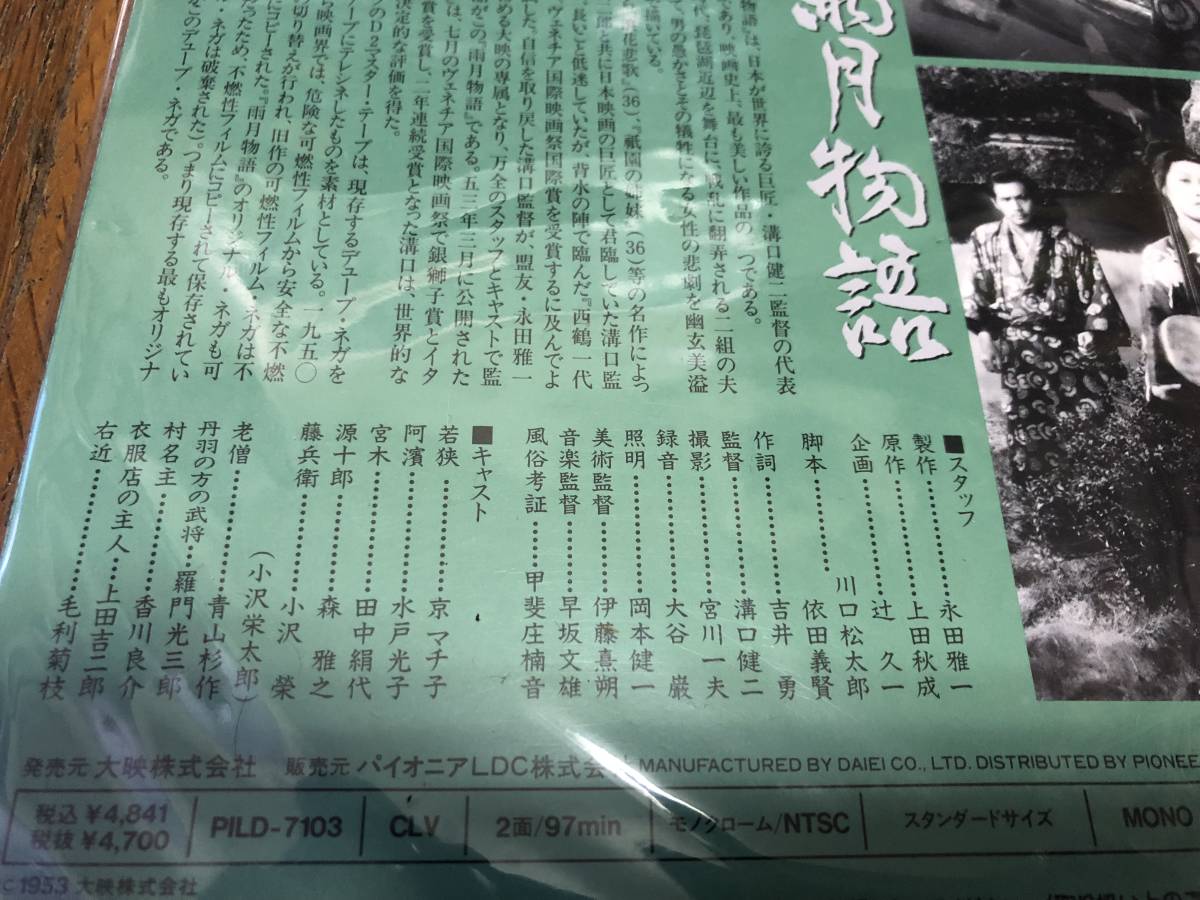 雨月物語
物語』は、日本が世界に誇る巨匠・溝口健二監督の代表
であり、映画史上、最も美しい作品の一つである。
代、琵琶湖近辺を舞台に、戦乱に翻弄される二組の夫
て、男の愚かさとその犠牲になる女性の悲劇を幽玄美溢
く描いている。
花悲歌』(36)、『祇園の姉妹』(36)等の名作によっ
二郎と共に日本映画の巨匠として君臨していた溝口監
、長いこと低迷していたが、背水の陣で臨んだ『西鶴一代
ヴェネチア国際映画祭国際賞を受賞するに及んでよ
した。自信を取り戻した溝口監督が、盟友・永田雅一
める大映の専属となり、万全のスタッフとキャストで監
がこの『雨月物語』である。五三年三月に公開された
は、七月のヴェネチア国際映画祭で銀獅子賞とイタ
賞を受賞し、二年連続受賞となった溝口は、世界的な
決定的な評価を得た。
のD2マスター・テープは、現存するデュープ・ネガを
ープにテレシネしたものを素材としている。一九五〇
ら映画界では、危険な可燃性フィルムから安全な不燃
切り替えが行われ、旧作の可燃性フィルム・ネガは不
にコピーされた。『雨月物語』のオリジナル・ネガも可
だったため、不燃性フィルムにコピーされて保存されてい
ル・ネガは破棄された。つまり現存する最もオリジナ
このデュープ・ネガである。
■スタッフ
製作……永田雅一
原作……上田秋成
企画……辻 久一
川口松太郎
脚本……依田義賢
作詞……吉井 勇
監督……溝口健二
撮影……宮川一夫
録音……大谷 巌
照明……岡本健一
美術監督……伊藤熹朔
音楽監督……早坂文雄
風俗考証……甲斐庄楠音
■キャスト
若狭……京 マチ子
阿濱……水戸光子
宮木……田中絹代
源十郎……森 雅之
藤兵衛……小沢 榮
(小沢栄太郎)
老僧……青山杉作
丹羽の方の武将……羅門光三郎
村名主……香川良介
衣服店の主人……上田吉二郎
右近……毛利菊枝
発売元 大映株式会社 販売元 パイオニアLDC株式会 MANUFACTURED BY DAIEI CO., LTD. DISTRIBUTED BY PIONEE
税込 ¥4,841
税抜 ¥4,700
PILD-7103
CLV
2面/97min
モノクローム/NTSC
スタンダードサイズ
MONO
C 1953 大映株式会社